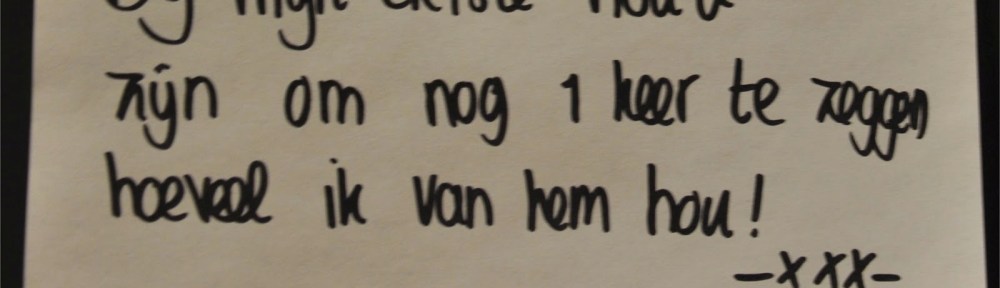 mijn
zijn om nog 1 keer te zeggen
hoeveel ik van hem hou!
-xxx-